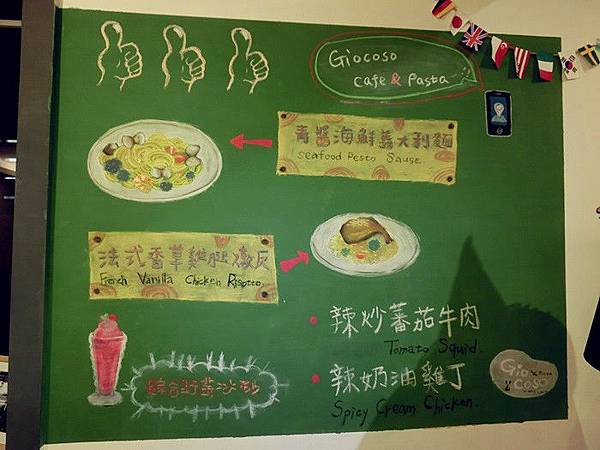 Giocoso
Cafe & Pasta
青醬海鮮義大利麵
Seafood Pesto Sause
法式香草雞腿燉反
French Vanilla Chicken Risotto
辣炒蕃茄牛肉
Tomato Squid.
辣奶油雞丁
Spicy Cream Chicken.
綜合野莓冰沙
Gio
Coso